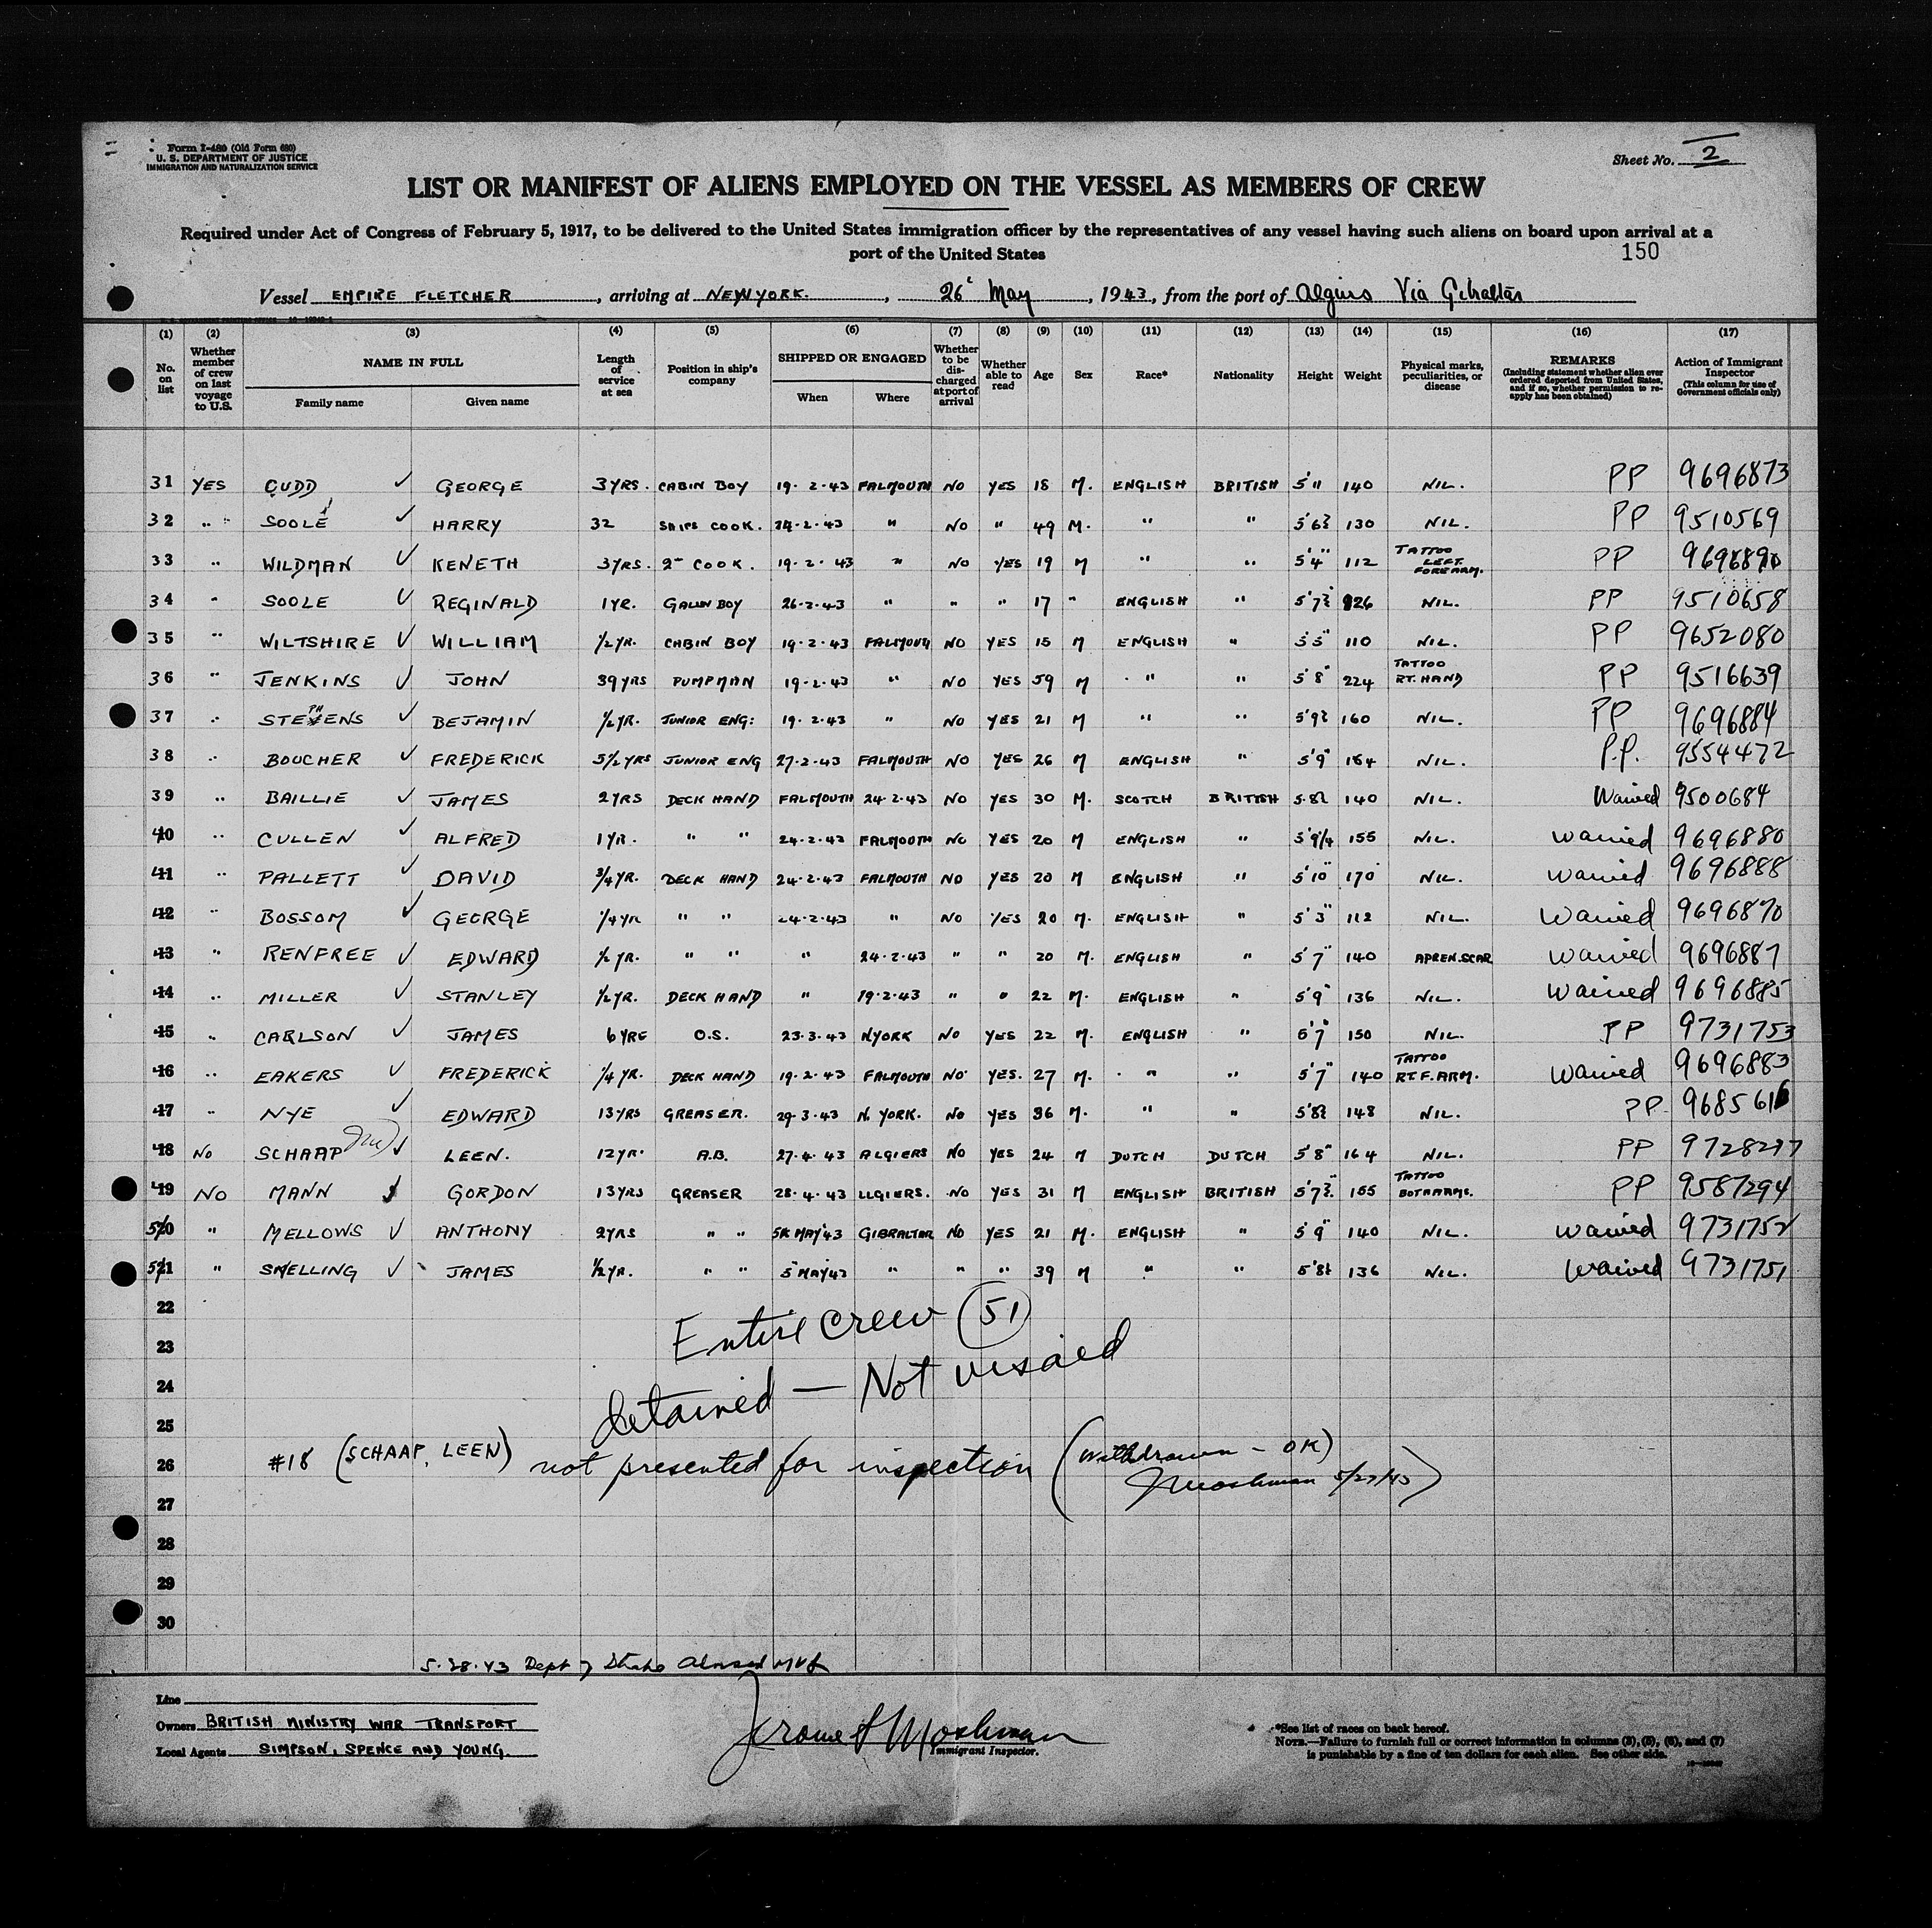 Form I-480 (Old Form 680)
U. S. DEPARTMENT OF JUSTICE
IMMIGRATION AND NATURALIZATION SERVICE
Sheet No. 2
LIST OR MANIFEST OF ALIENS EMPLOYED ON THE VESSEL AS MEMBERS OF CREW
Required under Act of Congress of February 5, 1917, to be delivered to the United States immigration officer by the representatives of any vessel having such aliens on board upon arrival at a
port of the United States
150
Vessel EMPIRE FLETCHER, arriving at NEWYORK., 26 May, 1943, from the port of Algiers Via Gibraltar
(1) (2) (3) (4) (5) (6) (7) (8) (9) (10) (11) (12) (13) (14) (15) (16) (17)
No. on list
Whether member of crew on last voyage to U.S.
NAME IN FULL
Family name
Given name
Length of service at sea
Position in ship's company
SHIPPED OR ENGAGED
When
Where
Whether to be discharged at port of arrival
Whether able to read
Age
Sex
Race*
Nationality
Height
Weight
Physical marks, peculiarities, or disease
REMARKS
(Including statement whether alien ever ordered deported from United States, and if so, whether permission to reapply has been obtained)
Action of Immigrant Inspector
(This column for use of Government officials only)
31 YES CUDD ✓ GEORGE 3 YRS. CABIN BOY 19-2-43 FALMOUTH NO YES 18 M. ENGLISH BRITISH 5'11 140 NIL. PP 9696873
32 " " SOOLE ✓ HARRY 32 SHIPS COOK. 24-2-43 " NO " 49 M. " " 5'6½ 130 NIL. PP 9510569
33 " WILDMAN ✓ KENETH 3YRS. 2ND COOK. 19-2-43 " NO YES 19 M " " 5'4" 112 TATTOO LEFT FOREARM. PP 9696890
34 " SOOLE ✓ REGINALD 1 YR. GALLEY BOY 26-2-43 " " " 17 " ENGLISH " 5'7½ 126 NIL. PP 9510658
35 " WILTSHIRE ✓ WILLIAM ½ YR. CABIN BOY 19-2-43 FALMOUTH NO YES 15 M ENGLISH " 5'5" 110 NIL. PP 9652080
36 " JENKINS ✓ JOHN 39 YRS PUMPMAN 19-2-43 " NO YES 59 M " " 5'8" 224 TATTOO RT. HAND PP 9516639
37 " STEPHENS ✓ BEJAMIN ½ YR. JUNIOR ENG: 19-2-43 " NO YES 21 M " " 5'9½ 160 NIL. PP 9696884
38 " BOUCHER ✓ FREDERICK 5½ YRS JUNIOR ENG 27-2-43 FALMOUTH NO YES 26 M ENGLISH " 5'9" 184 NIL. P.P. 9554472
39 " BAILLIE ✓ JAMES 2 YRS DECK HAND FALMOUTH 24-2-43 NO YES 30 M. SCOTCH BRITISH 5.8½ 140 NIL. Waived 9500684
40 " CULLEN ✓ ALFRED 1 YR. " " 24-2-43 FALMOUTH NO YES 20 M ENGLISH " 5'9¼ 155 NIL. Waived 9696880
41 " PALLETT ✓ DAVID ¾ YR. DECK HAND 24-2-43 FALMOUTH NO YES 20 M ENGLISH " 5'10" 170 NIL. Waived 9696888
42 " BOSSOM ✓ GEORGE ¼ YR " " 24-2-43 " NO YES 20 M. ENGLISH " 5'3" 112 NIL. Waived 9696870
43 " RENFREE ✓ EDWARD ½ YR. " " " 24-2-43 " " 20 M. ENGLISH " 5'7" 140 APPEN. SCAR Waived 9696887
44 " MILLER ✓ STANLEY ½ YR. DECK HAND " 19-2-43 " " 22 M. ENGLISH " 5'9" 136 NIL. Waived 9696885
45 " CARLSON ✓ JAMES 6 YRS O.S. 23-3-43 N.YORK NO YES 22 M. ENGLISH " 5'7" 150 NIL. PP 9731753
46 " EAKERS ✓ FREDERICK ¼ YR. DECK HAND 19-2-43 FALMOUTH NO YES. 27 M. " " 5'7" 140 TATTOO RT. F. ARM. Waived 9696883
47 " NYE ✓ EDWARD 13 YRS GREASER. 29-3-43 N. YORK. NO YES 36 M. " " 5'8½ 148 NIL. PP 9685616
48 NO SCHAAP ✓ LEEN. 12 YR. A.B. 27-4-43 ALGIERS NO YES 24 M DUTCH DUTCH 5'8" 164 NIL. PP 9728297
49 NO MANN GORDON 13 YRS GREASER 28-4-43 LLGIERS. NO YES 31 M ENGLISH BRITISH 5'7½ 155 TATTOO BOTH ARMS. PP 9587294
50 " MELLOWS ✓ ANTHONY 2 YRS " " 5TH MAY '43 GIBRALTAR NO YES 21 M. ENGLISH " 5'9" 140 NIL. Waived 9731752
51 " SNELLING ✓ JAMES ½ YR. " " 5 MAY 43 " " " 39 M " " 5'8½ 136 NIL. Waived 9731751
22
Entire crew (51)
23
24
detained — Not visaed
25
26 #18 (SCHAAP, LEEN) not presented for inspection (Withdrawn - OK)
JMoshman 5/27/43)
27
28
29
30
5.28.43 Dept of State Advised
Line
Owners BRITISH MINISTRY WAR TRANSPORT
Local Agents SIMPSON, SPENCE AND YOUNG.
Jerome Moshman
Immigrant Inspector.
*See list of races on back hereof.
NOTE.—Failure to furnish full or correct information in columns (3), (5), (6), and (7)
is punishable by a fine of ten dollars for each alien. See other side.